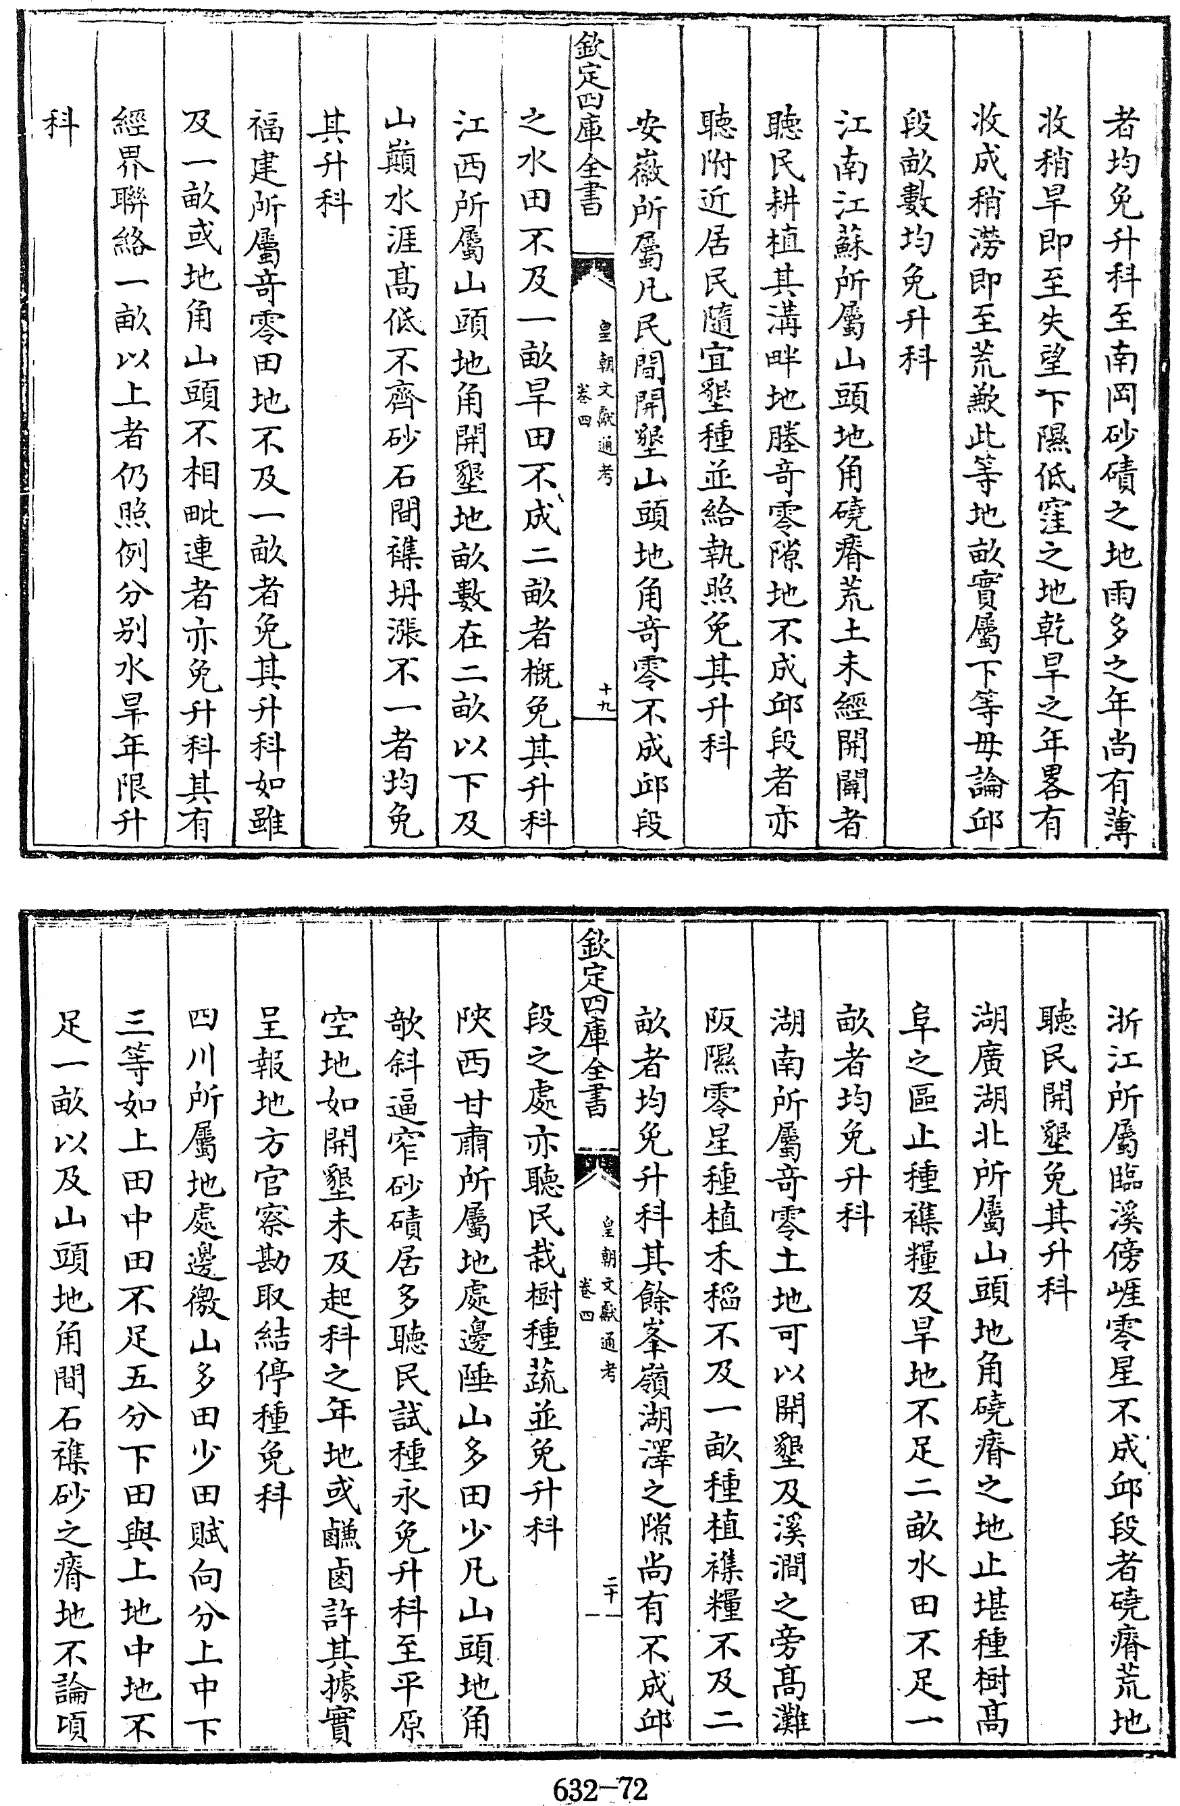 者均免升科至南岡砂磧之地雨多之年尚有薄
收稍旱即至失望下隰低窪之地乾旱之年畧有
收成稍澇即至荒歉此等地畝實屬下等毋論邱
段畝數均免升科
江南江蘇所屬山頭地角磽瘠荒土未經開闢者
聽民耕植其溝畔地塍奇零隙地不成邱段者亦
聽附近居民隨宜墾種並給執照免其升科
安徽所屬凡民間開墾山頭地角奇零不成邱段
欽定四庫全書
皇朝文獻通考
卷四
十九
之水田不及一畝旱田不成二畝者概免其升科
江西所屬山頭地角開墾地畝數在二畝以下及
山巔水涯高低不齊砂石間襍坍漲不一者均免
其升科
福建所屬奇零田地不及一畝者免其升科如雖
及一畝或地角山頭不相毗連者亦免升科其有
經界聯絡一畝以上者仍照例分别水旱年限升
科
浙江所屬臨溪傍崕零星不成邱段者磽瘠荒地
聽民開墾免其升科
湖廣湖北所屬山頭地角磽瘠之地止堪種樹高
阜之區止種襍糧及旱地不足二畝水田不足一
畝者均免升科
湖南所屬奇零土地可以開墾及溪澗之旁高灘
阪隰零星種植禾稻不及一畝種植襍糧不及二
畝者均免升科其餘峯嶺湖澤之隙尚有不成邱
欽定四庫全書
皇朝文獻通考
卷四
二十
段之處亦聽民栽樹種蔬並免升科
陜西甘肅所屬地處邊陲山多田少凡山頭地角
欹斜逼窄砂磧居多聽民試種永免升科至平原
空地如開墾未及起科之年地或鹻鹵許其據實
呈報地方官察勘取結停種免科
四川所屬地處邊徼山多田少田賦向分上中下
三等如上田中田不足五分下田與上地中地不
足一畝以及山頭地角間石襍砂之瘠地不論頃
632-72